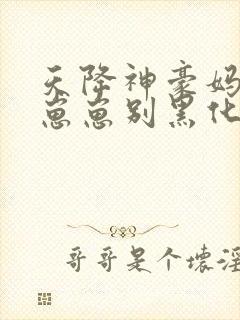 天降神豪妈
崽崽别黑化
哥哥是个坏淫